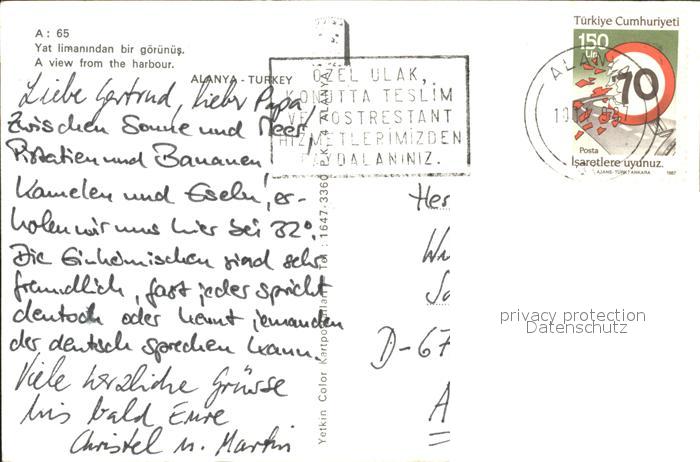 A : 65
Yat limanından bir görünüş.
A view from the harbour.
ALANYA - TURKEY
Liebe Gertrud, lieber Papa!
Zwischen Sonne und Meer,
Pistazien und Bananen,
Kamelen und Eseln, er-
holen wir uns hier bei 32°.
Die Einheimischen sind sehr
freundlich, fast jeder spricht
deutsch oder kennt jemanden
der deutsch sprechen kann.
Viele herzliche Grüsse
bis bald Eure
Christel u. Martin
Yetkin Color Kartpostalları Tel : 1647-3360
ÖZEL ULAK,
KONUTTA TESLİM
VE POSTRESTANT
HİZMETLERİMİZDEN
FAYDALANINIZ.
ALANYA
Türkiye Cumhuriyeti
150
Lira
70
Posta
İşaretlere uyunuz.
AJANS-TÜRK/ANKARA 1987
Her
D-67
A
privacy protection
Datenschutz